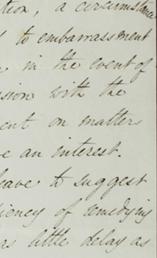 tion, a circumstance
to embarrassment
in the event of
sion with the
ent on matters
e an interest.
leave to suggest
iency of remedying
as little delay as